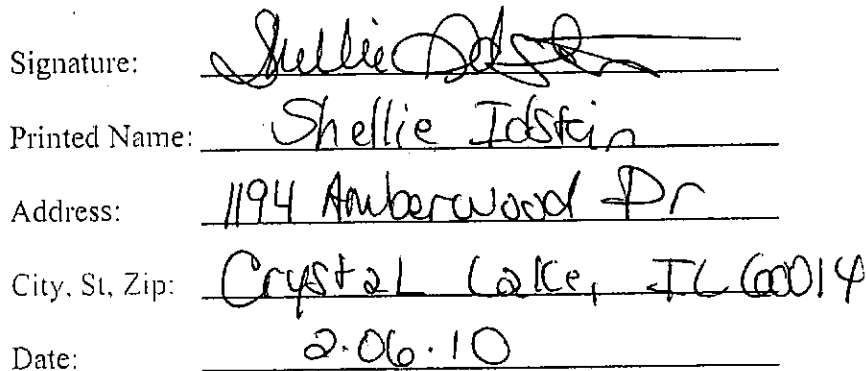 Signature: Shellie Idstein
Printed Name: Shellie Idstein
Address: 1194 Amberwood Dr
City, St, Zip: Crystal Lake, IL 60014
Date: 2.06.10